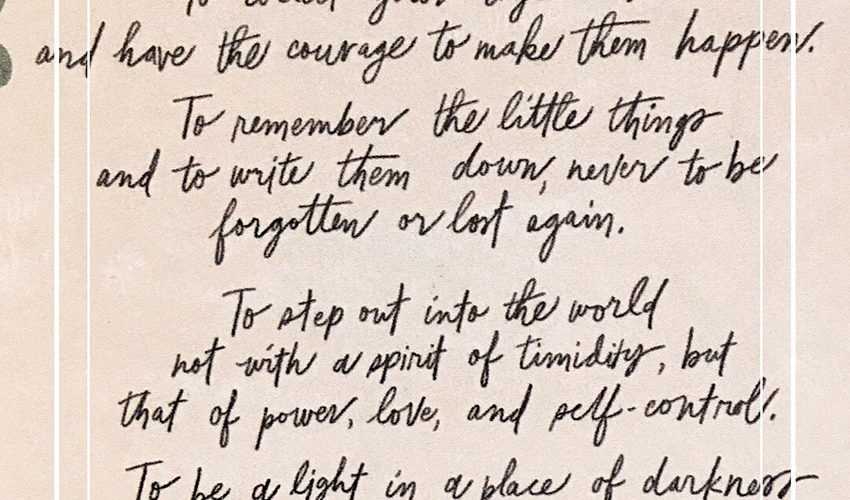 To your
and have the courage to make them happen.
To remember the little things
and to write them down, never to be
forgotten or lost again.
To step out into the world
not with a spirit of timidity, but
that of power, love, and self-control.
To be a light in a place of darkness